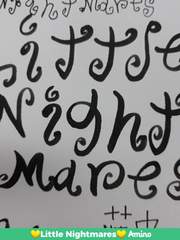 NightMares
ittle
Night
Mares
💛Little Nightmares💛 Amino